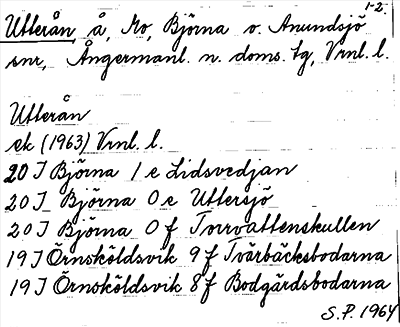 1-2.
Utterån å, Mo, Björna o. Anundsjö
snr, Ångermanl. n. doms. tg, Vrnl. l.
Utterån
ek (1963) Vrnl. l.
20 I Björna 1 e Lidsvedjan
20 I Björna 0 e Uttersjö
20 I Björna 0 f Torrvattenskullen
19 I Örnsköldsvik 9 f Tvärbäcksbodarna
19 I Örnsköldsvik 8 f Bodgårdsbodarna
S.P. 1964